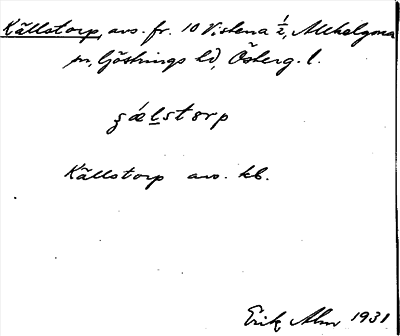 Källstorp, avs. fr. 10 Vistena ½, Allhelgona
sn, Göstrings hd, Österg. l.
Källstorp avs. kb.
Erik Alm 1931